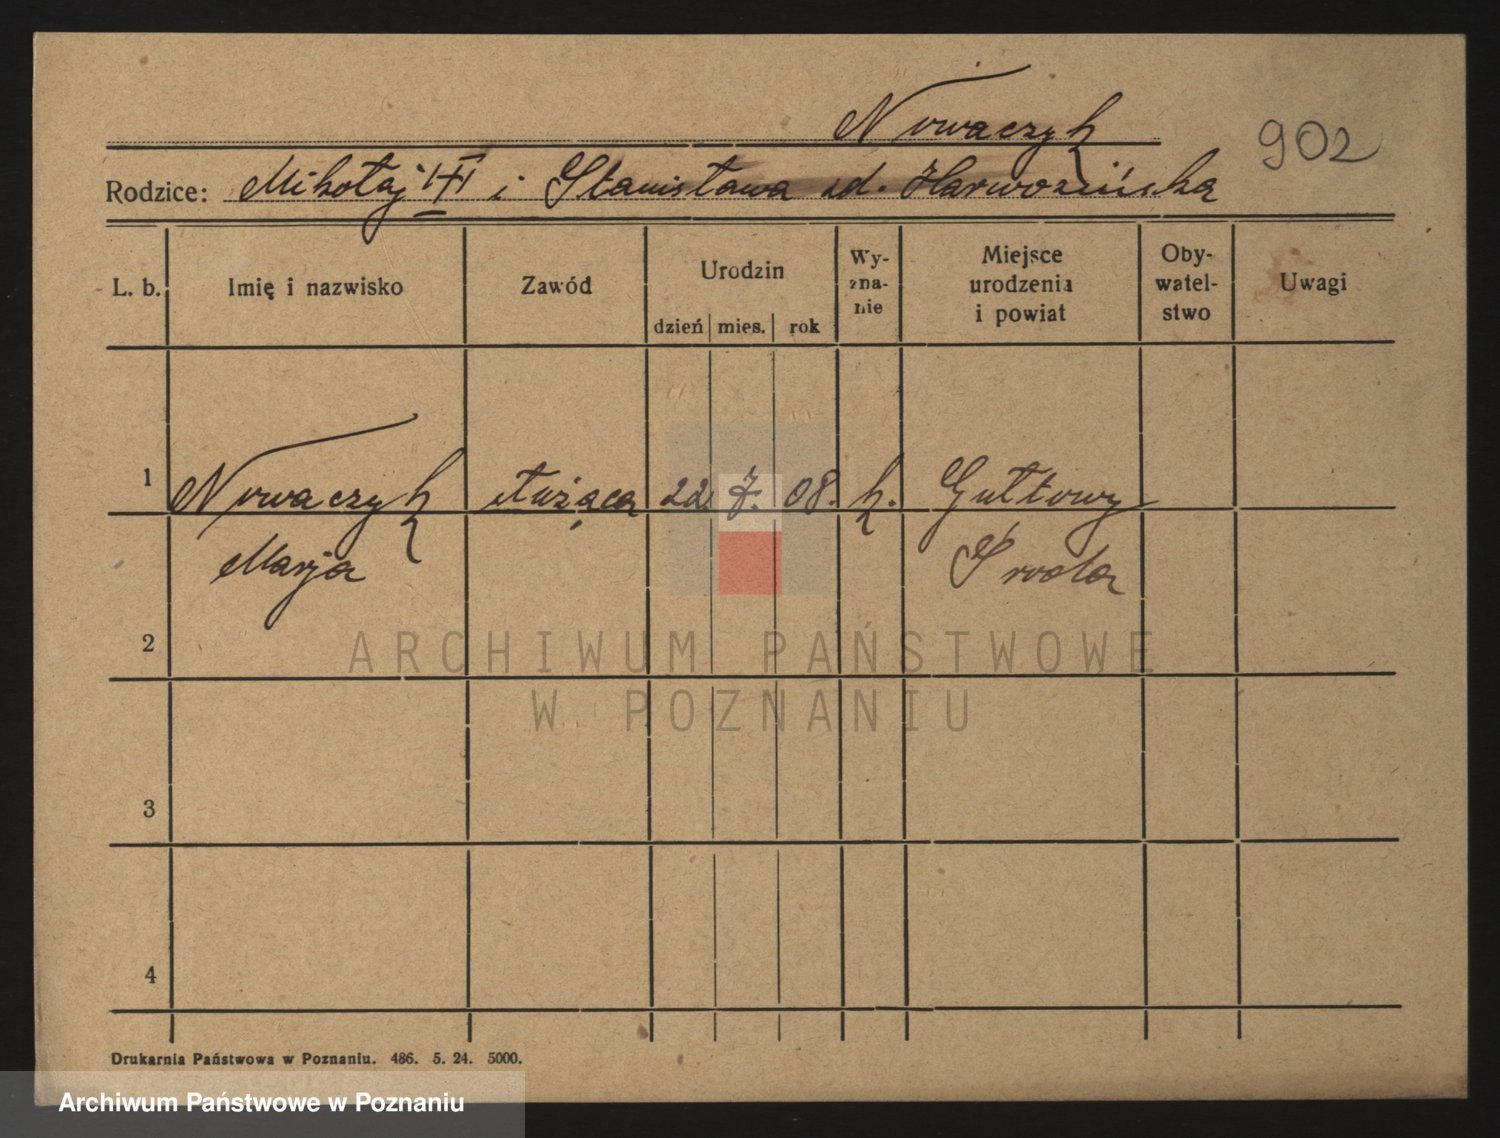 Nowaczyk
902
Rodzice: Mikołaj i Stanisława zd.
L. b. Imię i nazwisko Zawód Urodzin dzień mies. rok Wy-zna-nie Miejsce urodzenia i powiat Oby-watel-stwo Uwagi
1 Nowaczyk służąca 22. 7. 08. k. Gułtowy
Marja Środa
2
ARCHIWUM PAŃSTWOWE
W POZNANIU
3
4
Drukarnia Państwowa w Poznaniu. 486. 5. 24. 5000.
Archiwum Państwowe w Poznaniu